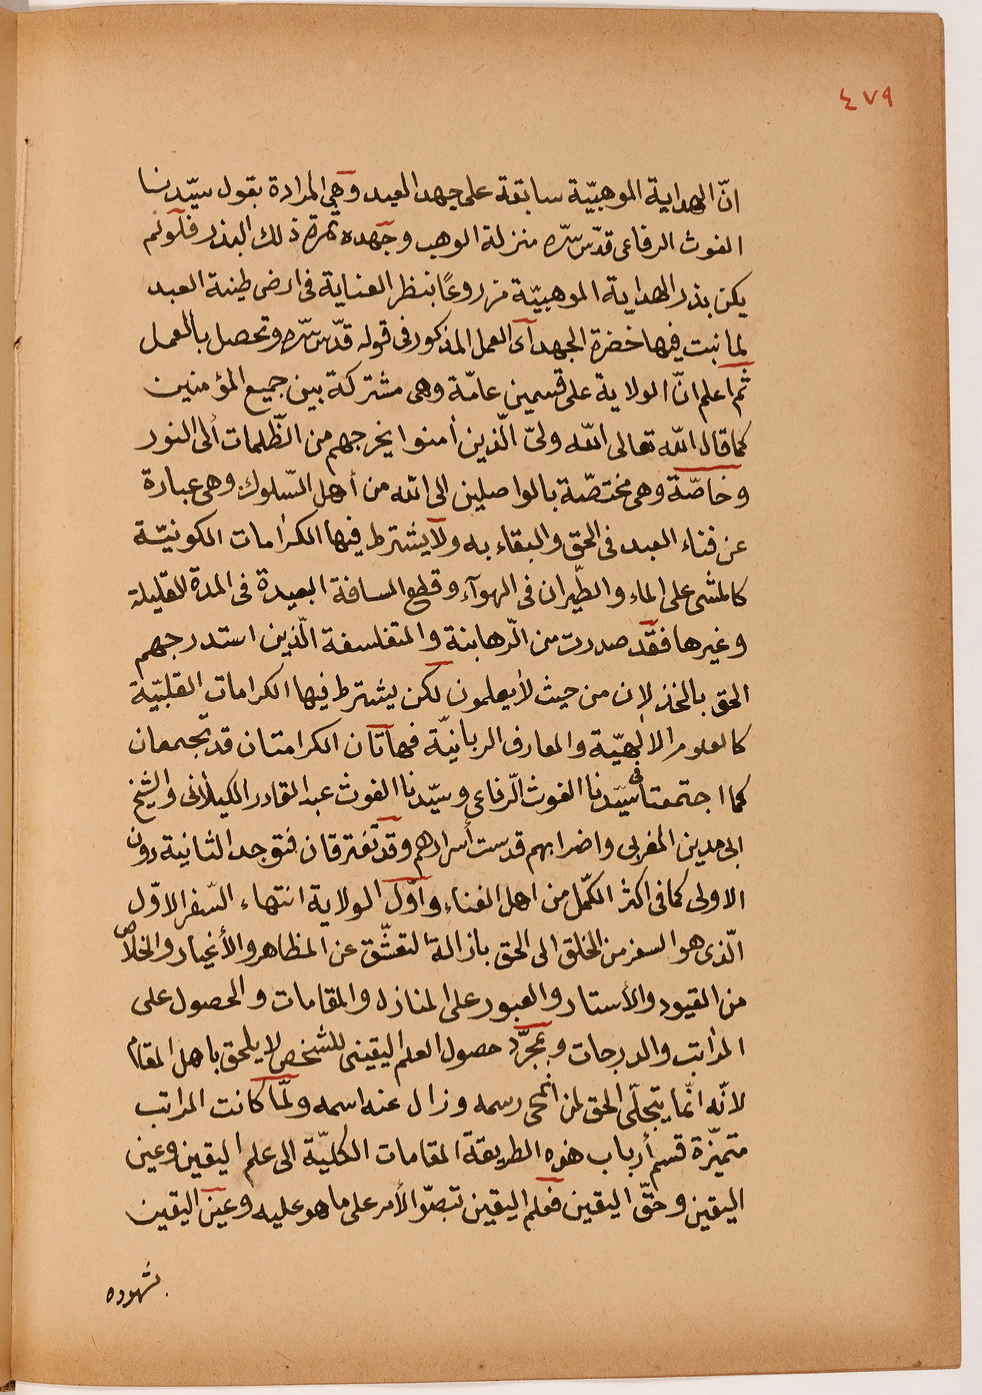 ٤٧٩
انّ الهداية الموهبيّة سابقة على جهد العبد وهي المرادة بقول سيّدنا
الغوث الرفاعى قدّس سرّه منزلة الوهب وجهده ثمرة ذلك البذر فلولم
يكن بذر الهداية الموهبيّة مزروعًا بنظر العناية فى ارض طينة العبد
لما نبت فيها خضرة الجهد اى العمل المذكور فى قوله قدّس سرّه وتحصل بالعمل
ثم اعلم انّ الولاية على قسمين عامّة وهى مشتركة بين جميع المؤمنين
كما قال الله تعالى الله ولىّ الّذين أمنوا يخرجهم من الظّلمات ألى النور
وخاصّة وهى مختصّة بالواصلين الى الله من أهل السّلوك وهى عبارة
عن فناء العبد فى الحق والبقاء به ولا يشترط فيها الكرامات الكونيّة
كالمشى على الماء والطّيران فى الهوآء وقطع المسافة البعيدة فى المدة القليلة
وغيرها فقد صدرت من الرّهابنة والمتفلسفة الّذين استدرجهم
الحق بالخذلان من حيث لا يعلمون لكن يشترط فيها الكرامات القلبيّة
كالعلوم الالهيّة والمعارف الربانيّة فهاتان الكرامتان قد تجتمعان
كما اجتمعتا فى سيّدنا الغوث الرّفاعى وسيّدنا الغوث عبد القادر الكيلانى والشيخ
ابى مدين المغربى واضرابهم قدست أسرارهم وقد تفترقان فتوجد الثانية دون
الاولى كما فى اكثر الكمّل من اهل الفناء وأوّل الولاية انتهاء السّفر الاوّل
الّذى هو السفر من الخلق الى الحق بازالة التعشّق عن المظاهر والأغيار والخلاص
من القيود والأستار والعبور على المنازل والمقامات والحصول على
المراتب والدرجات وبمجرّد حصول العلم اليقينى للشخص لا يلحق باهل المقام
لانّه انّما يتجلّى الحق لمن انمحى رسمه وزال عنه اسمه ولمّا كانت المراتب
متميّزة قسم أرباب هذه الطريقة المقامات الكليّة الى علم اليقين وعين
اليقين وحقّ اليقين فعلم اليقين تبصّر الأمر على ما هو عليه وعين اليقين
شهوده